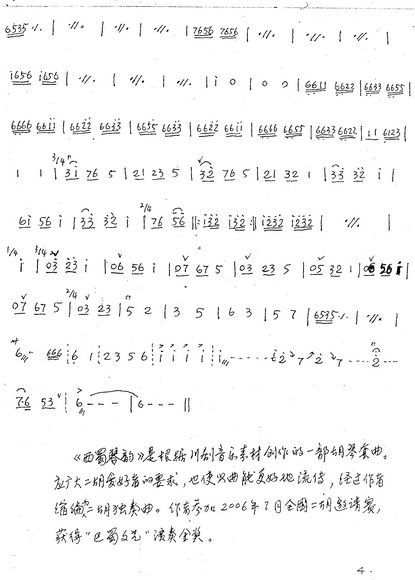 6535 ·/. | ·//. | ·//. | ·//. | 7656 7656 | ·//. | ·//. | ·//. |
i656 i656 | ·//. | ·//. | ·//. | i 0 | 0 0 | 66i1 6623 | 6633 6655 |
6666 66ii | 6622 6633 | 6655 6633 | 6622 66ii | 6666 6655 | 6623 6622 | i i 6123 |
1 1 | 3/4 3i 76 5 | 21 23 5 | 32 76 5 | 21 32 1 | 33 32 i |
6i 56 i | 33 32 i | 2/4 76 56 |: i32 i32 :|: i232 i232 | ·//. |
1/4 i | 3/4 03 23 i | 06 56 i | 07 67 5 | 03 23 5 | 05 32 1 | 06 56 i |
07 67 5 | 2/4 03 23 | 5 2 | 3 5 | 6 3 | 5 7 | 6535 ·/. | ·//. |
6 666 6 1 2 3 5 6 i i i i i 2 7 2 7 2
76 53 | 6 - - - | 6 - - ‖
《西蜀琴韵》是根据川剧音乐素材创作的一部胡琴套曲。
应广大二胡爱好者的要求，也使此曲能更好地流传，经过作者
缩编为二胡独奏曲。作者参加2006年7月全国二胡邀请赛，
获得“巴蜀文艺”演奏金奖。
4.